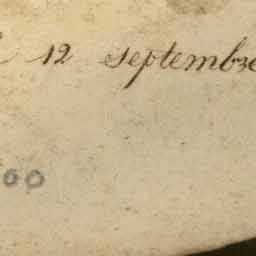 12 septembre
00